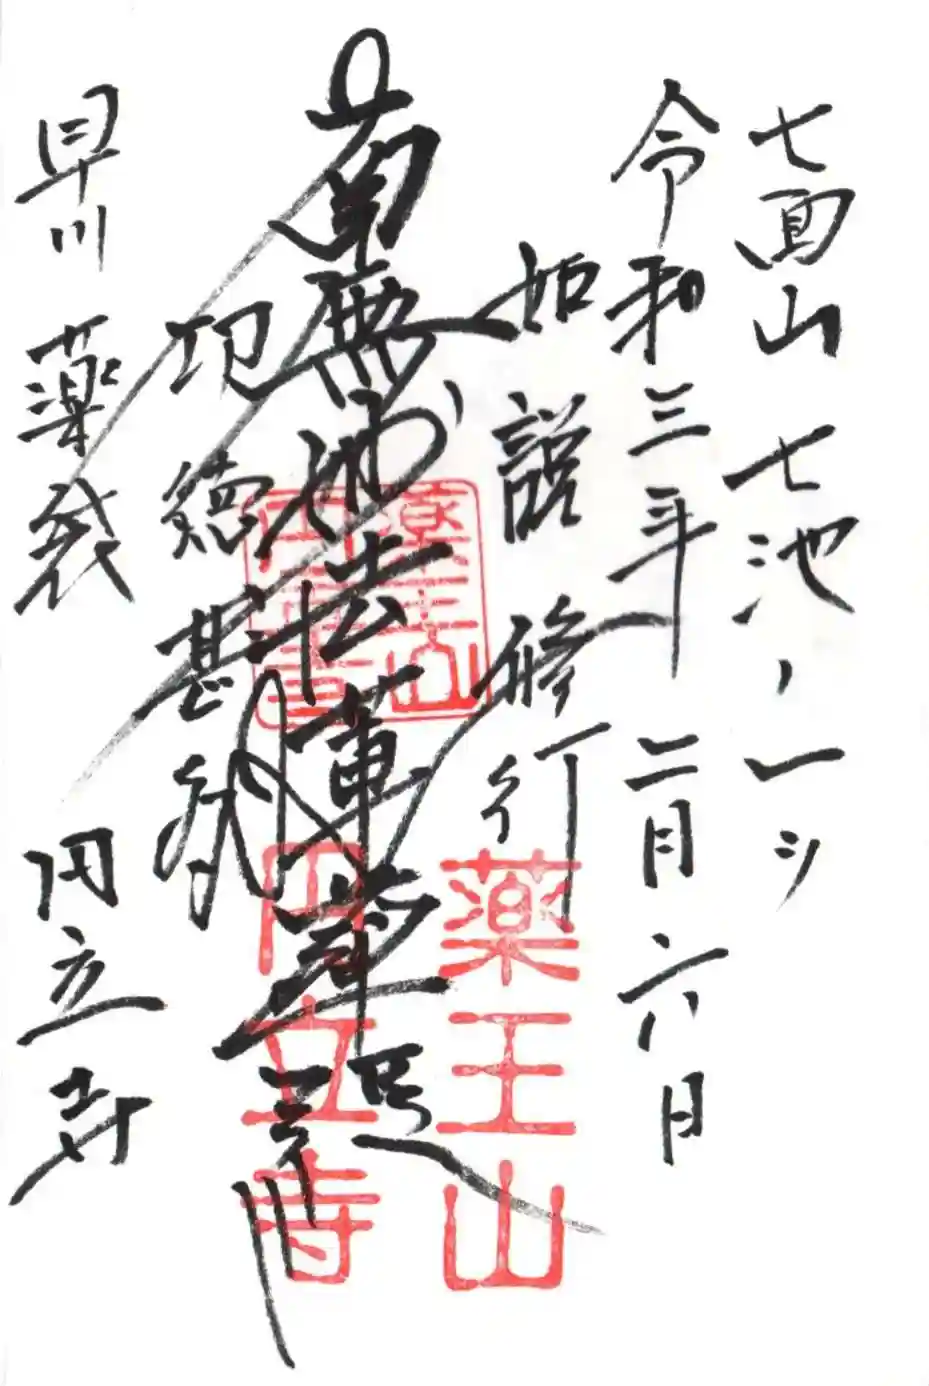 七面山 七池ノ一ツ
令和三年 二月 六日
如説修行
南無妙法蓮華経
功徳甚多
早川 薬袋 円立寺
薬王山
円立寺
薬王山